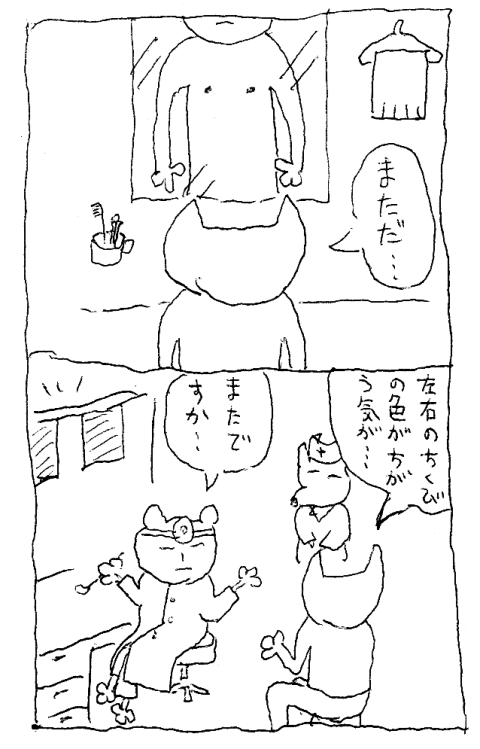 まただ…
左右のちくび
の色がちが
う気が…
またで
すか…